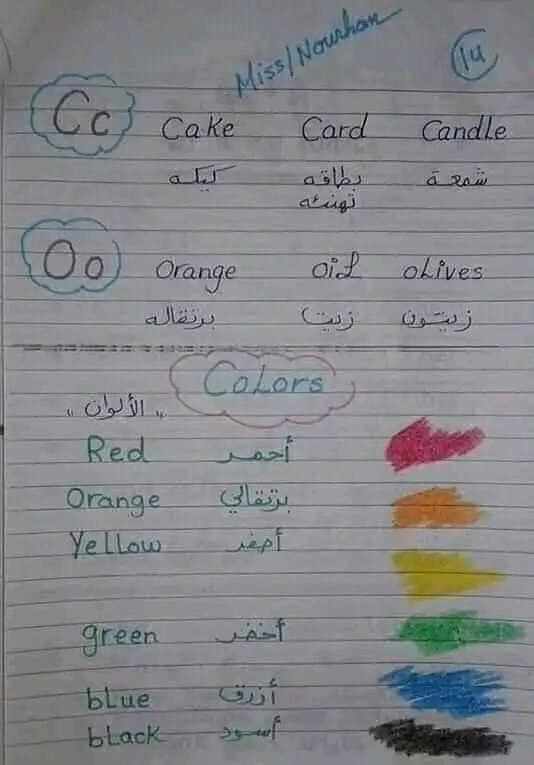 Miss/Nourhan
14
Cc Cake Card Candle
كيكه بطاقه شمعة
تهنئه
Oo Orange oil olives
برتقاله زيت زيتون
Colors
"الألوان"
Red أحمر
Orange برتقالي
Yellow أصفر
green أخضر
blue أزرق
black أسود